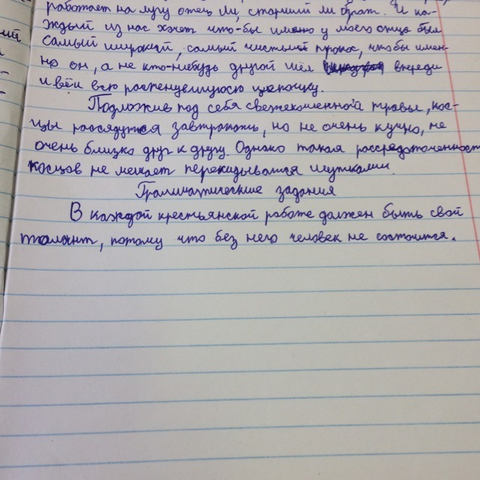 работает на лугу отец ли, старший ли брат. И ка-
ждый из нас хочет что-бы имено у моего отца был
самый широкий, самый чистый прокос, чтобы имен-
но он, а не кто-нибудь другой шёл впереди
и вёл всю растенувшуюся цепочку.
Подложив под себя свежескошенной травы, кос-
цы рассядутся завтракать, но не очень кучно, не
очень близко друг к другу. Однако такая рассредоточенность
косцов не мешает перекидываться шутками.
Грамматические задания
В каждой крестьянской работе должен быть свой
талант, потому что без него человек не состоится.